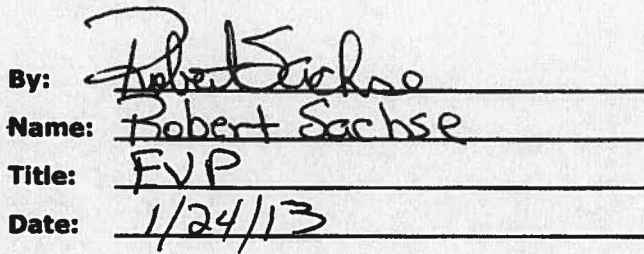 By: Robert Sachse
Name: Robert Sachse
Title: EVP
Date: 1/24/13